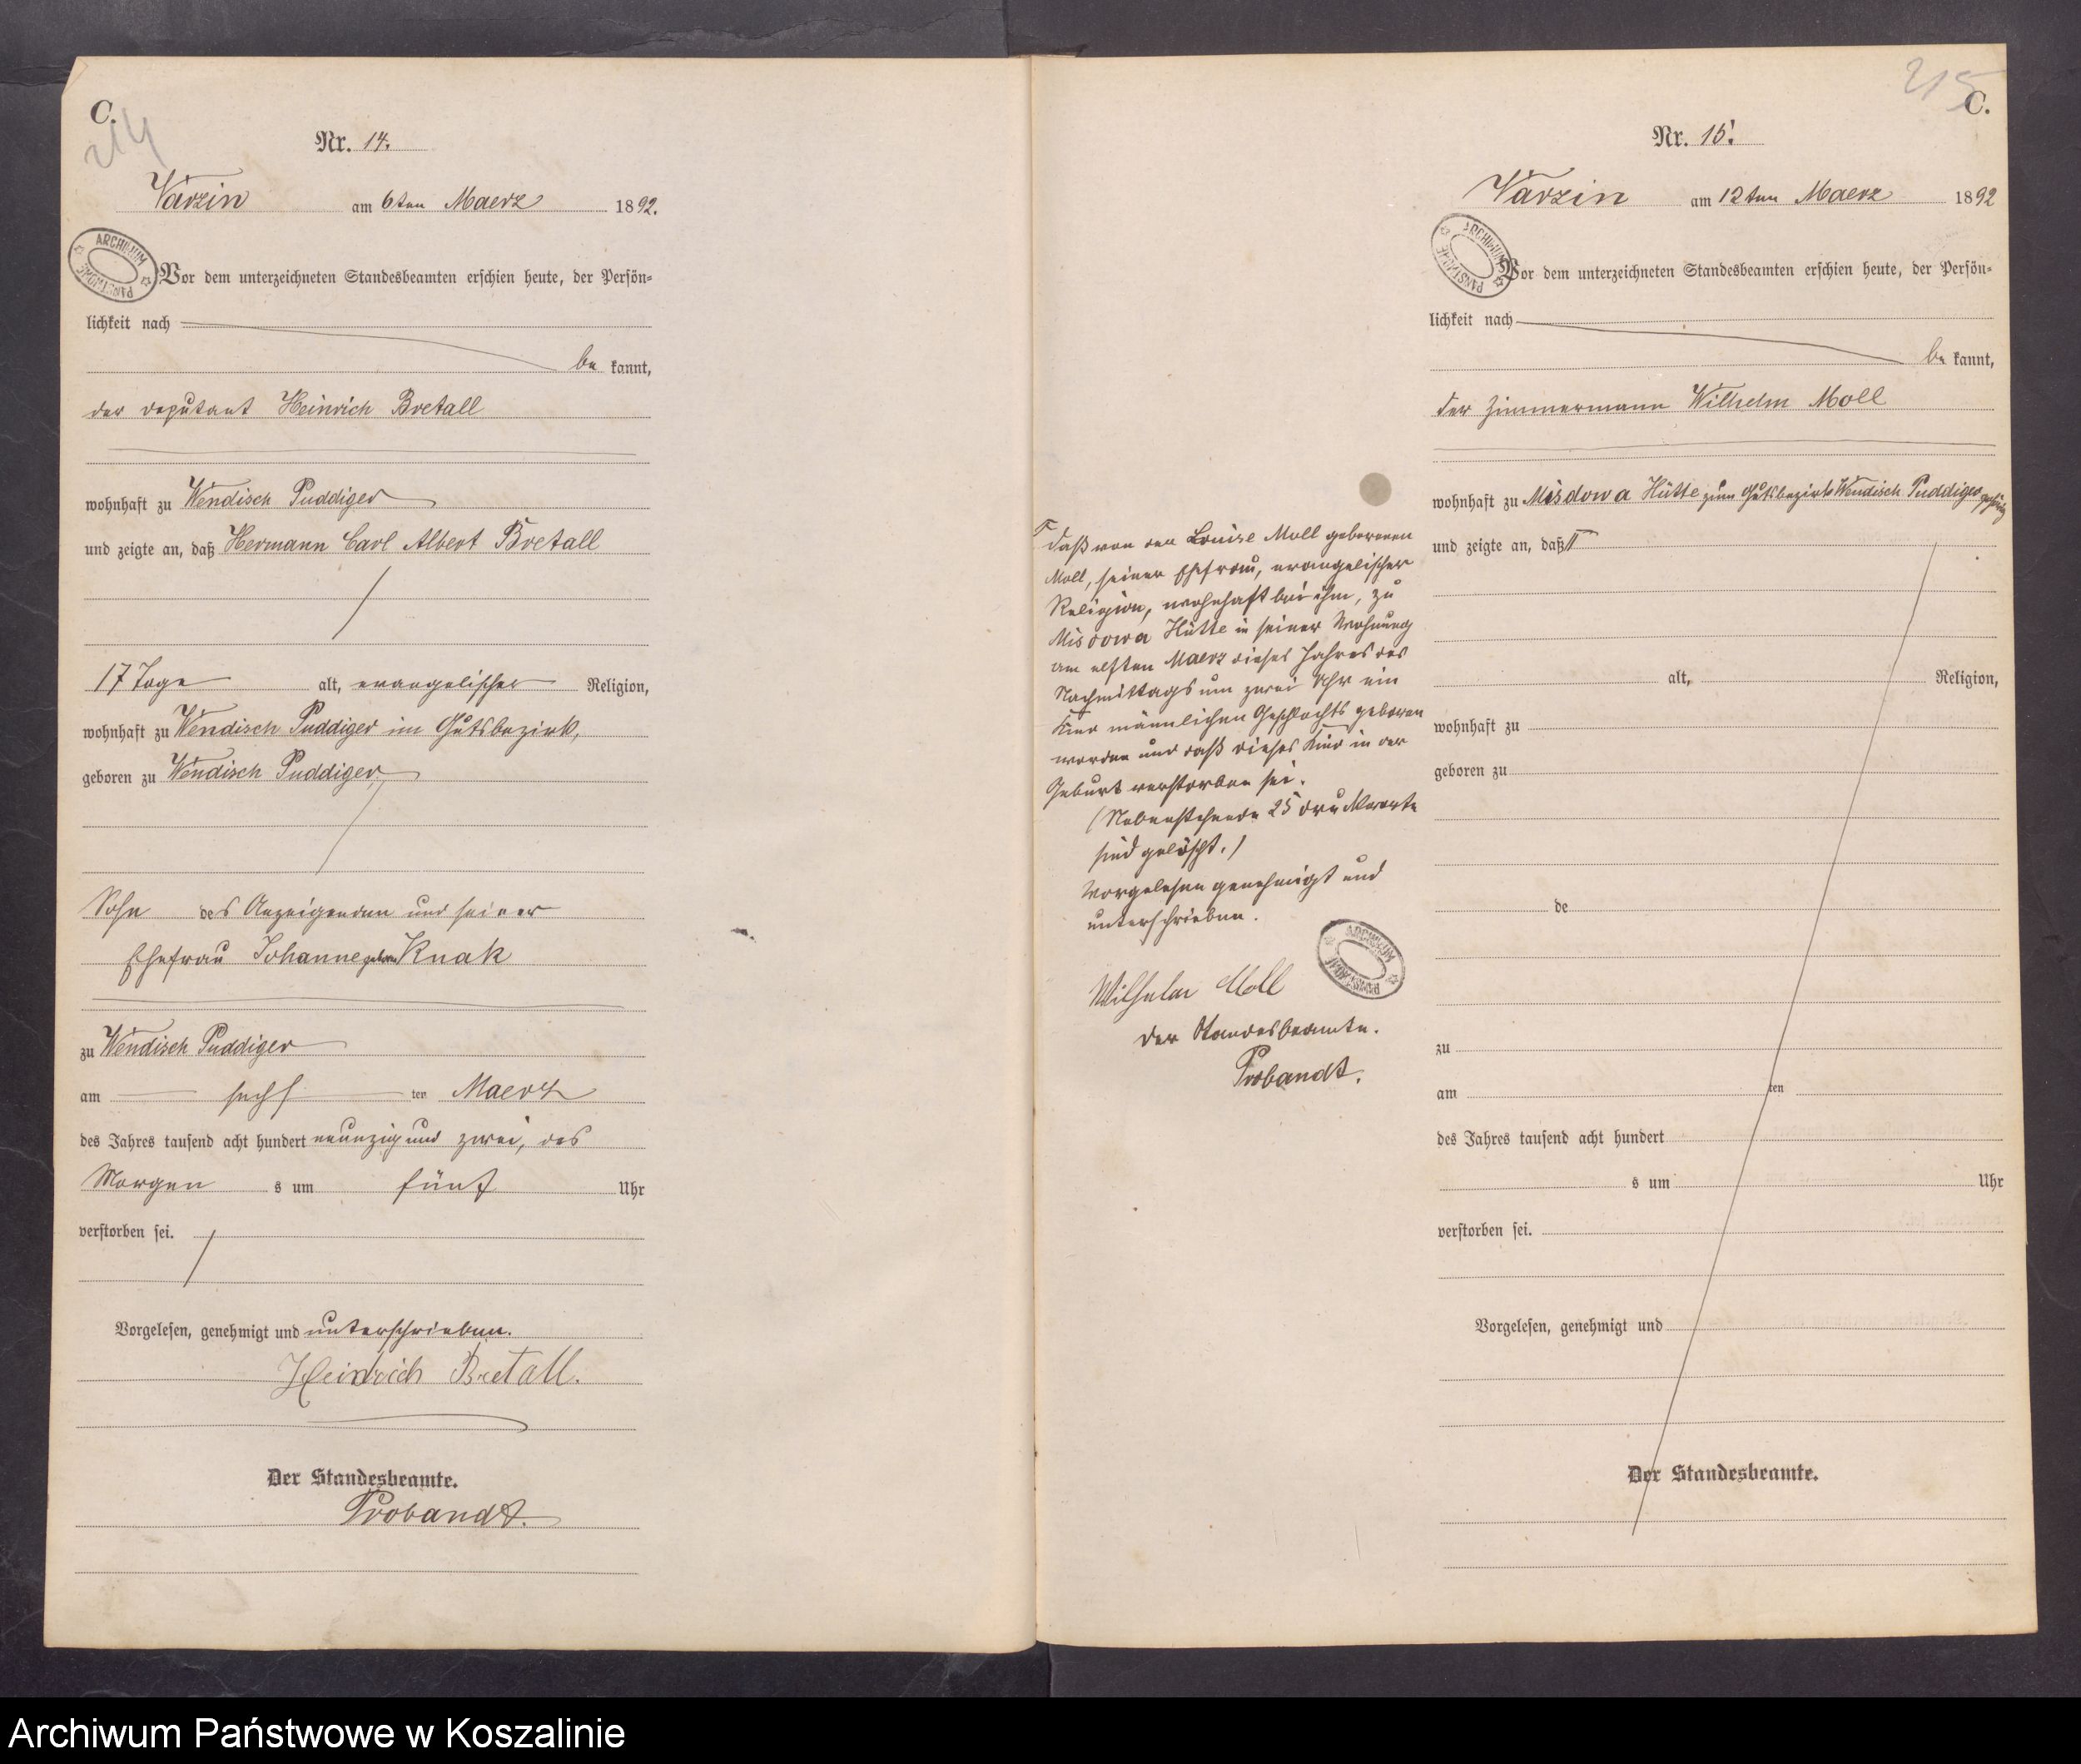 C.
214
Nr. 14.
Varzin am 6ten Maerz 1892.
ARCHIWUM PAŃSTWOWE
Vor dem unterzeichneten Standesbeamten erschien heute, der Persön-
lichkeit nach
be kannt,
der deputant Heinrich Bretall
wohnhaft zu Wendisch Puddiger
und zeigte an, daß Hermann Carl Albert Bretall
17 Tage alt, evangelischer Religion,
wohnhaft zu Wendisch Puddiger im Gutsbezirk,
geboren zu Wendisch Puddiger,
Sohn des Anzeigenden und seiner
Ehefrau Johanne geborene Knak
zu Wendisch Puddiger
am sechs ten Maerz
des Jahres tausend acht hundert neunzig und zwei, des
Morgen s um fünf Uhr
verstorben sei.
Vorgelesen, genehmigt und unterschrieben.
Heinrich Bretall.
Der Standesbeamte.
Probandt.
215
C.
Nr. 15.
Varzin am 12ten Maerz 1892
ARCHIWUM PAŃSTWOWE
Vor dem unterzeichneten Standesbeamten erschien heute, der Persön-
lichkeit nach
be kannt,
der Zimmermann Wilhelm Moll
wohnhaft zu Misdowa Hütte zum Gutsbezirk Wendisch Puddiger gehörig
und zeigte an, daß
alt, Religion,
wohnhaft zu
geboren zu
de
zu
am ten
des Jahres tausend acht hundert
s um Uhr
verstorben sei.
Vorgelesen, genehmigt und
Der Standesbeamte.
daß von der Louise Moll geborenen
Moll, seiner Ehefrau, evangelischer
Religion, wohnhaft bei ihm, zu
Misdowa Hütte in seiner Wohnung
am elften Maerz dieses Jahres des
Nachmittags um zwei Uhr ein
Kind männlichen Geschlechts geboren
worden und daß dieses Kind in der
Geburt verstorben sei.
(Nebenstehende 25 Druckworte
sind gelöscht.)
Vorgelesen genehmigt und
unterschrieben.
ARCHIWUM PAŃSTWOWE
Wilhelm Moll
Der Standesbeamte.
Probandt.
Archiwum Państwowe w Koszalinie